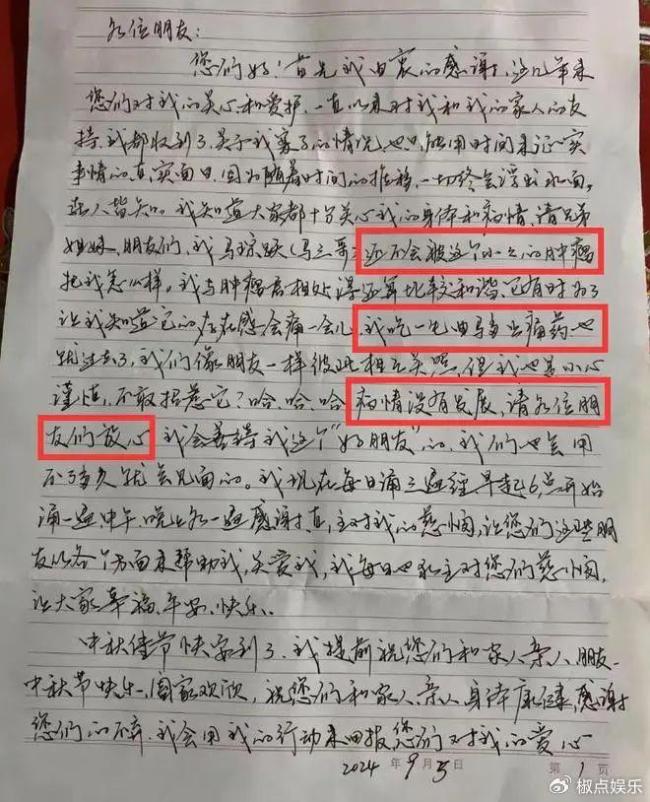 各位朋友：
您们好！首先我由衷的感谢，这几年来
您们对我的关心和爱护，一直以来对我和我的家人的支
持，我都收到了，关于我案子的情况，也只能用时间来证实
事情的真实面目，因为随着时间的推移，一切终会浮出水面，
众人皆知。我知道大家都十分关心我的身体和病情，请兄弟
姐妹，朋友们，我马（马三哥）还不会被这个小小的肿瘤
把我怎么样。我与肿瘤君相处得还算比较和谐，它有时为了
让我知道它的存在感会痛一会儿，我吃一些曲马多止痛药也
就过去了，我们像朋友一样彼此相互关照，但我也是小心
谨慎，不敢招惹它？哈、哈、哈，病情没有发展，请各位朋
友们放心，我会善待我这个“好朋友”的，我们也会用
不了多久就会见面的。我现在每日诵三遍经，早起6点开始
诵一遍，中午、晚上各一遍，感谢真主对我的慈悯，让您们这些朋
友从各个方面来帮助我，关爱我，我每日也求主对您们慈悯，
让大家幸福、平安、快乐、
中秋佳节快要到了，我提前祝您们和家人亲人、朋友、
中秋节快乐、阖家欢欣，祝您们和家人、亲人身体康健，感谢
您们的不弃，我会用我的行动来回报您们对我的爱心
2024年9月5日 第1页
椒点娱乐